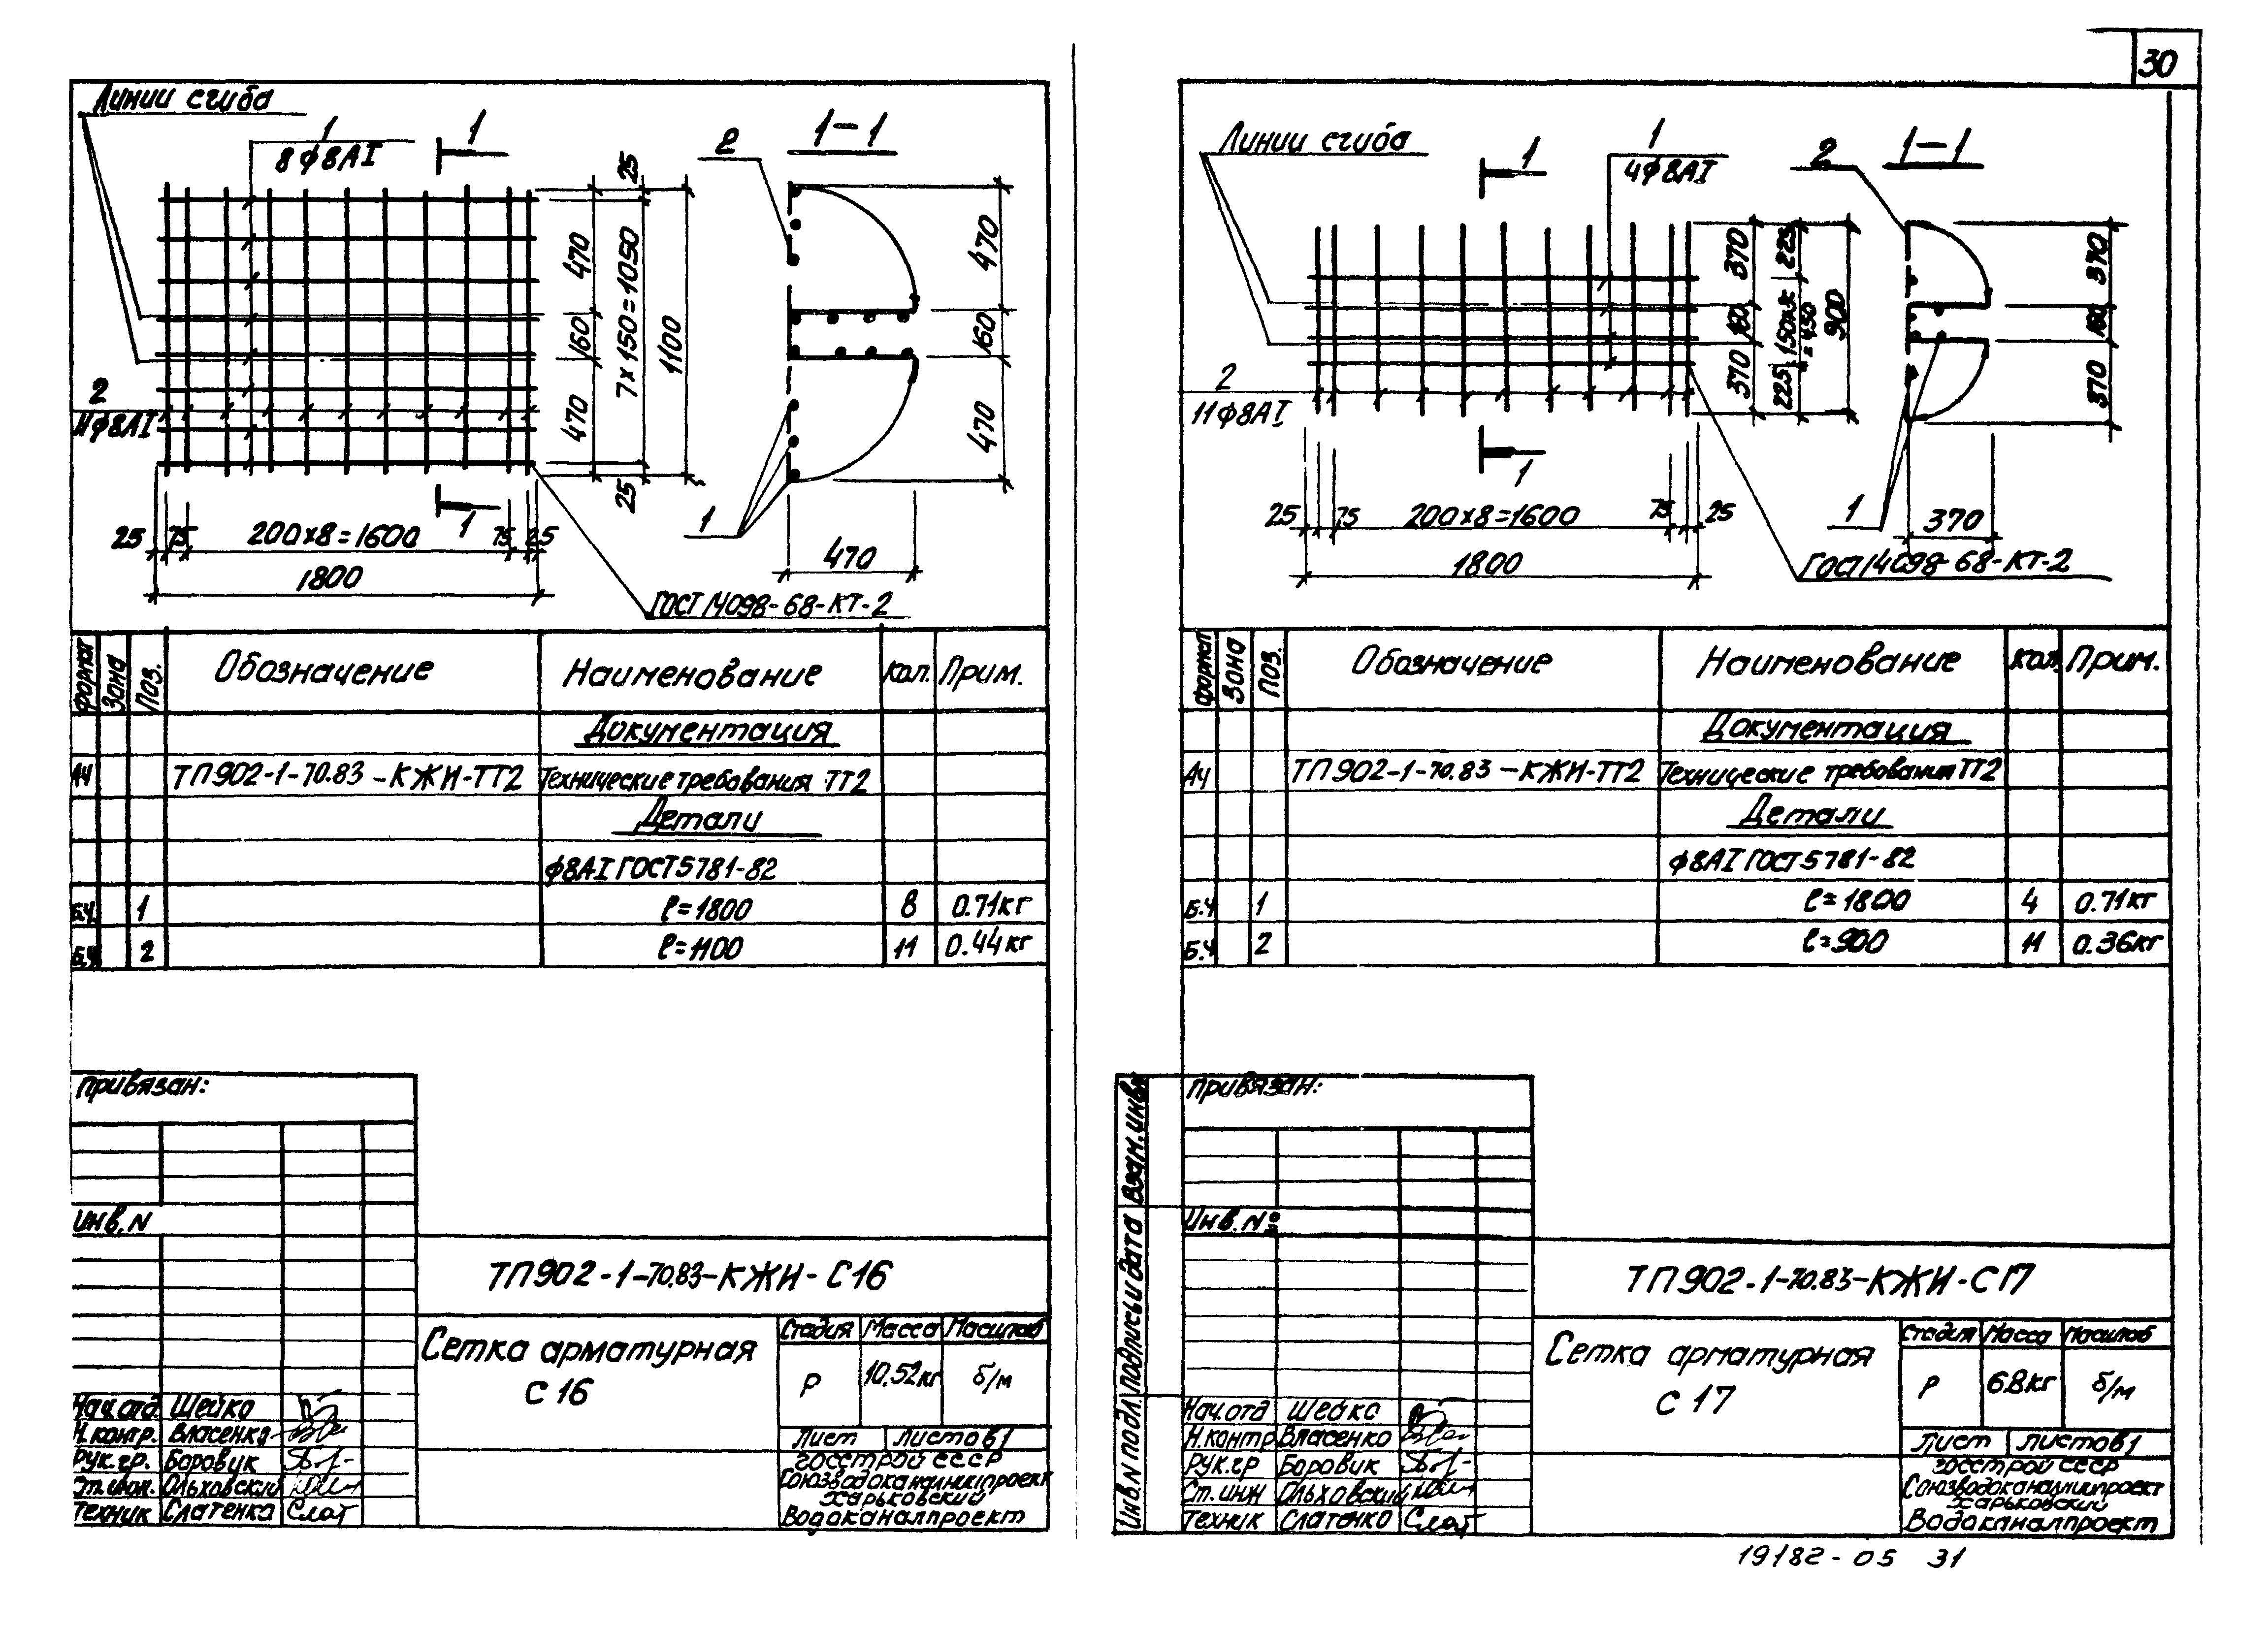 30
Линии сгиба
1
8ф8АI
1
2
1-1
25
470
7х150=1050
1100
160
470
25
470
160
470
2
11ф8АI
1
1
25 75 200х8=1600 75 25
1800
470
ГОСТ 14098-68-КТ-2
Формат Зона Поз. Обозначение Наименование Кол. Прим.
Документация
А4 ТП902-1-70.83-КЖИ-ТТ2 Технические требования ТТ2
Детали
ф8АI ГОСТ 5781-82
Б.Ч. 1 ℓ=1800 8 0.71кг
Б.Ч. 2 ℓ=1100 11 0.44кг
Привязан:
Инв. N
ТП902-1-70.83-КЖИ-С16
Сетка арматурная
С 16
Стадия Масса Масштаб
Р 10.52кг б/м
Лист Листов 1
Нач.отд. Шейко
Н.контр. Власенко
Рук.гр. Боровик
Ст.инж. Ольховский
Техник Слатенко
Госстрой СССР
Союзводоканалниипроект
Харьковский
Водоканалпроект
Линии сгиба
1
4ф8АI
1
2
1-1
370
225
160
150х3
=450
900
370
225
370
160
370
2
11ф8АI
1
1
25 75 200х8=1600 75 25
1800
370
ГОСТ 14098-68-КТ-2
Формат Зона Поз. Обозначение Наименование Кол. Прим.
Документация
А4 ТП902-1-70.83-КЖИ-ТТ2 Технические требования ТТ2
Детали
ф8АI ГОСТ 5781-82
Б.Ч 1 ℓ=1800 4 0.71кг
Б.Ч 2 ℓ=900 11 0.36кг
Взам.инв.
Подпись и дата
Инв.N подл.
Привязан:
Инв. №
ТП902-1-70.83-КЖИ-С17
Сетка арматурная
С 17
Стадия Масса Масштаб
Р 6.8кг б/м
Лист Листов 1
Нач.отд Шейко
Н.контр Власенко
Рук.гр Боровик
Ст.инж Ольховский
Техник Слатенко
Госстрой СССР
Союзводоканалниипроект
Харьковский
Водоканалпроект
19182-05 31